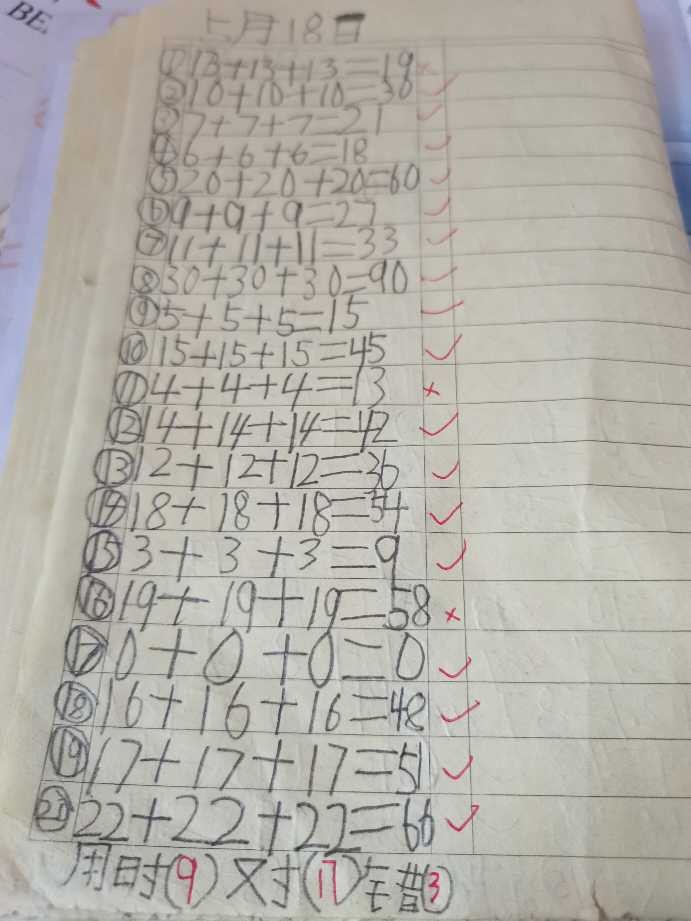 BE
5月18日
① 13+13+13=19 ×
② 10+10+10=30 ✓
③ 7+7+7=21 ✓
④ 6+6+6=18 ✓
⑤ 20+20+20=60 ✓
⑥ 9+9+9=27 ✓
⑦ 11+11+11=33 ✓
⑧ 30+30+30=90 ✓
⑨ 5+5+5=15 ✓
⑩ 15+15+15=45 ✓
⑪ 4+4+4=13 ×
⑫ 14+14+14=42 ✓
⑬ 12+12+12=36 ✓
⑭ 18+18+18=54 ✓
⑮ 3+3+3=9 ✓
⑯ 19+19+19=58 ×
⑰ 0+0+0=0 ✓
⑱ 16+16+16=48 ✓
⑲ 17+17+17=51 ✓
⑳ 22+22+22=66 ✓
用时(9)对(17)错(3)